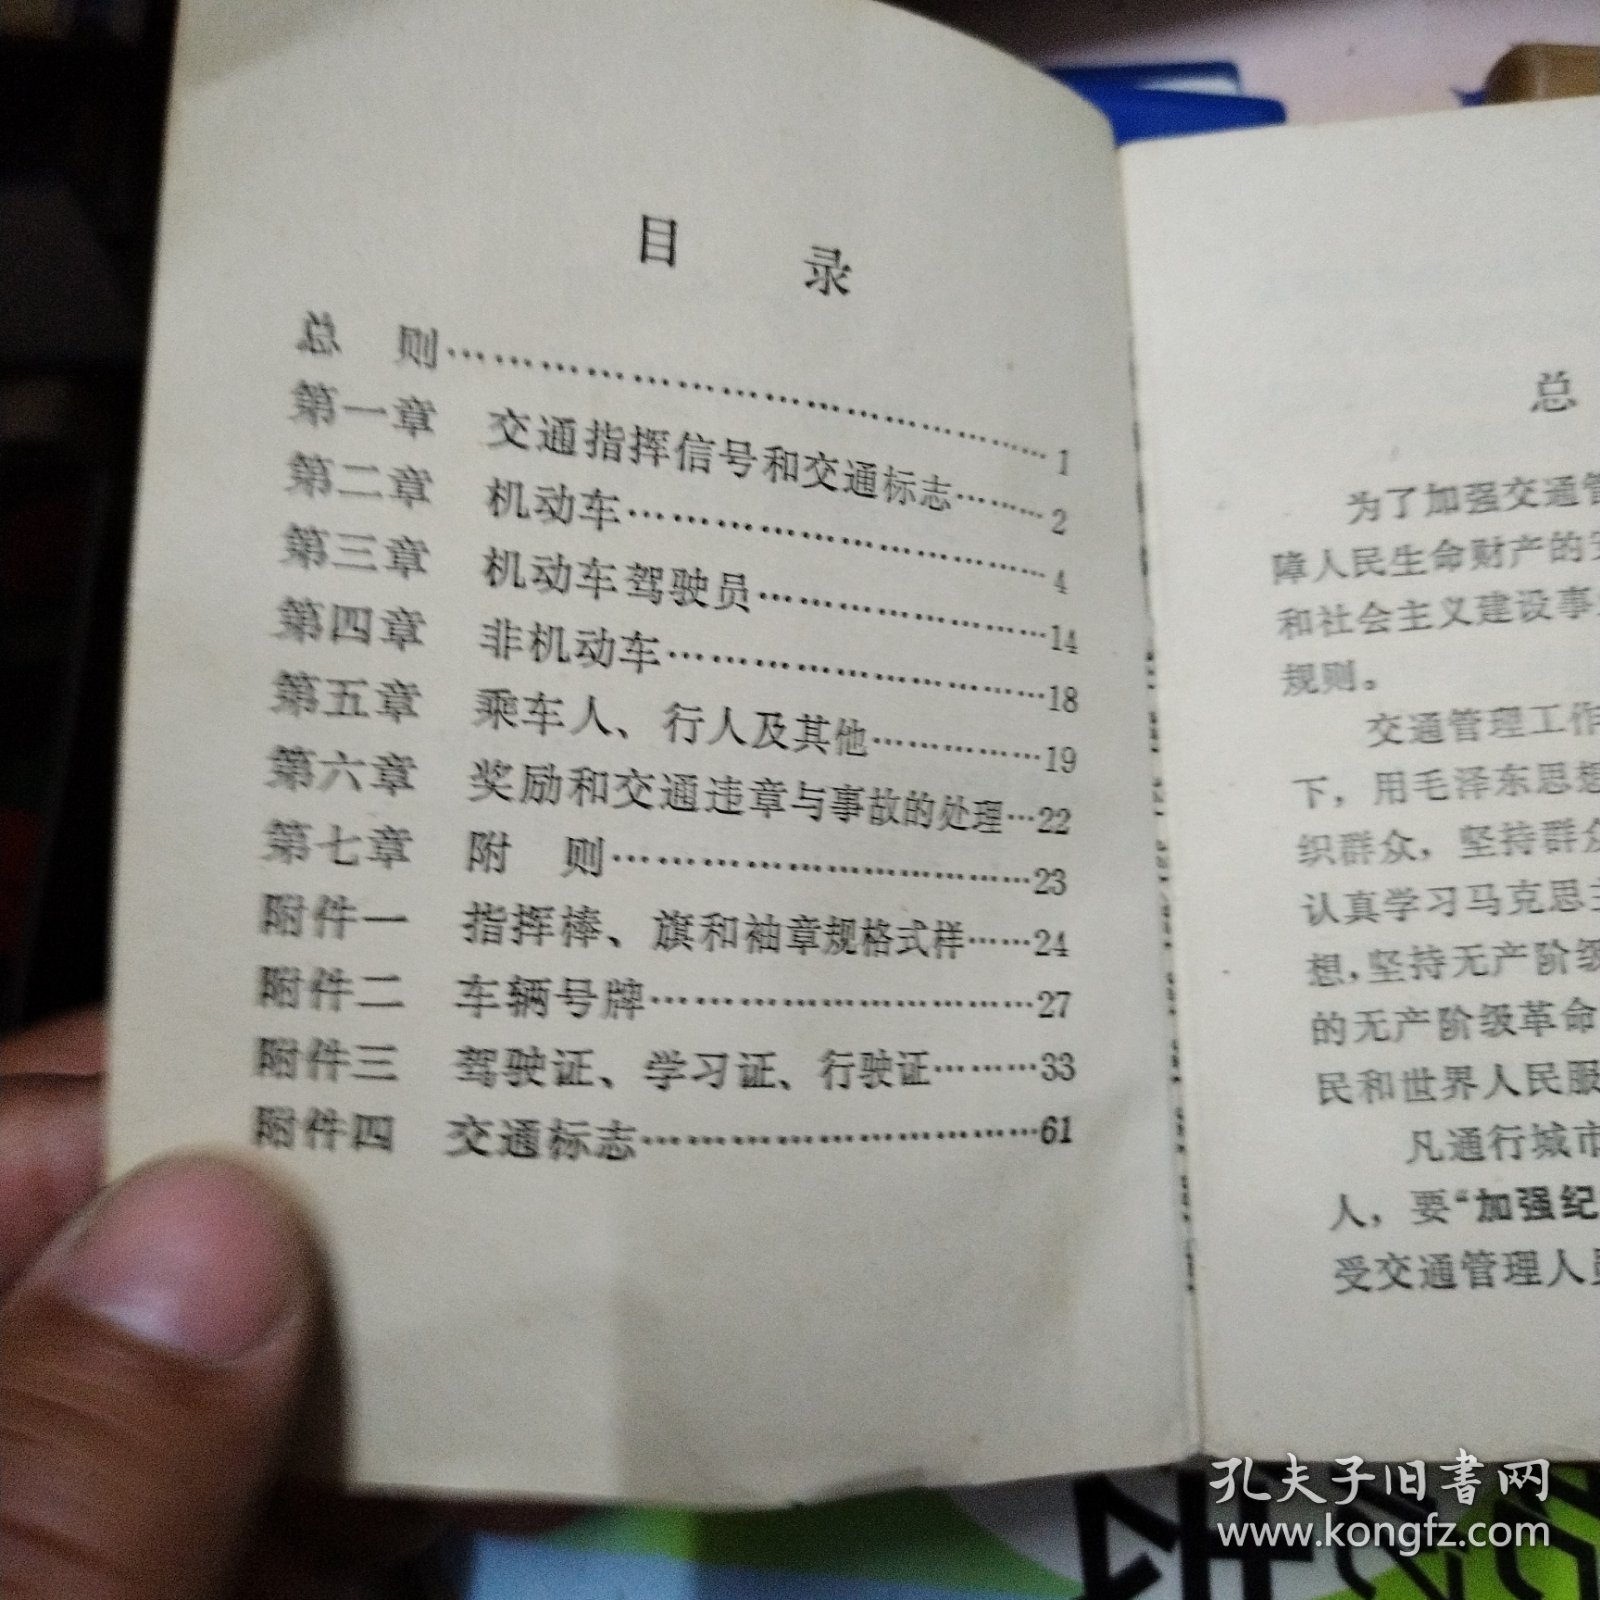 目 录
总 则……………………………………1
第一章 交通指挥信号和交通标志………2
第二章 机动车…………………………4
第三章 机动车驾驶员…………………14
第四章 非机动车………………………18
第五章 乘车人、行人及其他……………19
第六章 奖励和交通违章与事故的处理…22
第七章 附 则…………………………23
附件一 指挥棒、旗和袖章规格式样……24
附件二 车辆号牌………………………27
附件三 驾驶证、学习证、行驶证………33
附件四 交通标志………………………61
总
为了加强交通管
障人民生命财产的安
和社会主义建设事
规则。
交通管理工作
下，用毛泽东思想
织群众，坚持群众
认真学习马克思主
想，坚持无产阶级
的无产阶级革命
民和世界人民服
凡通行城市
人，要“加强纪
受交通管理人员
孔夫子旧书网
www.kongfz.com